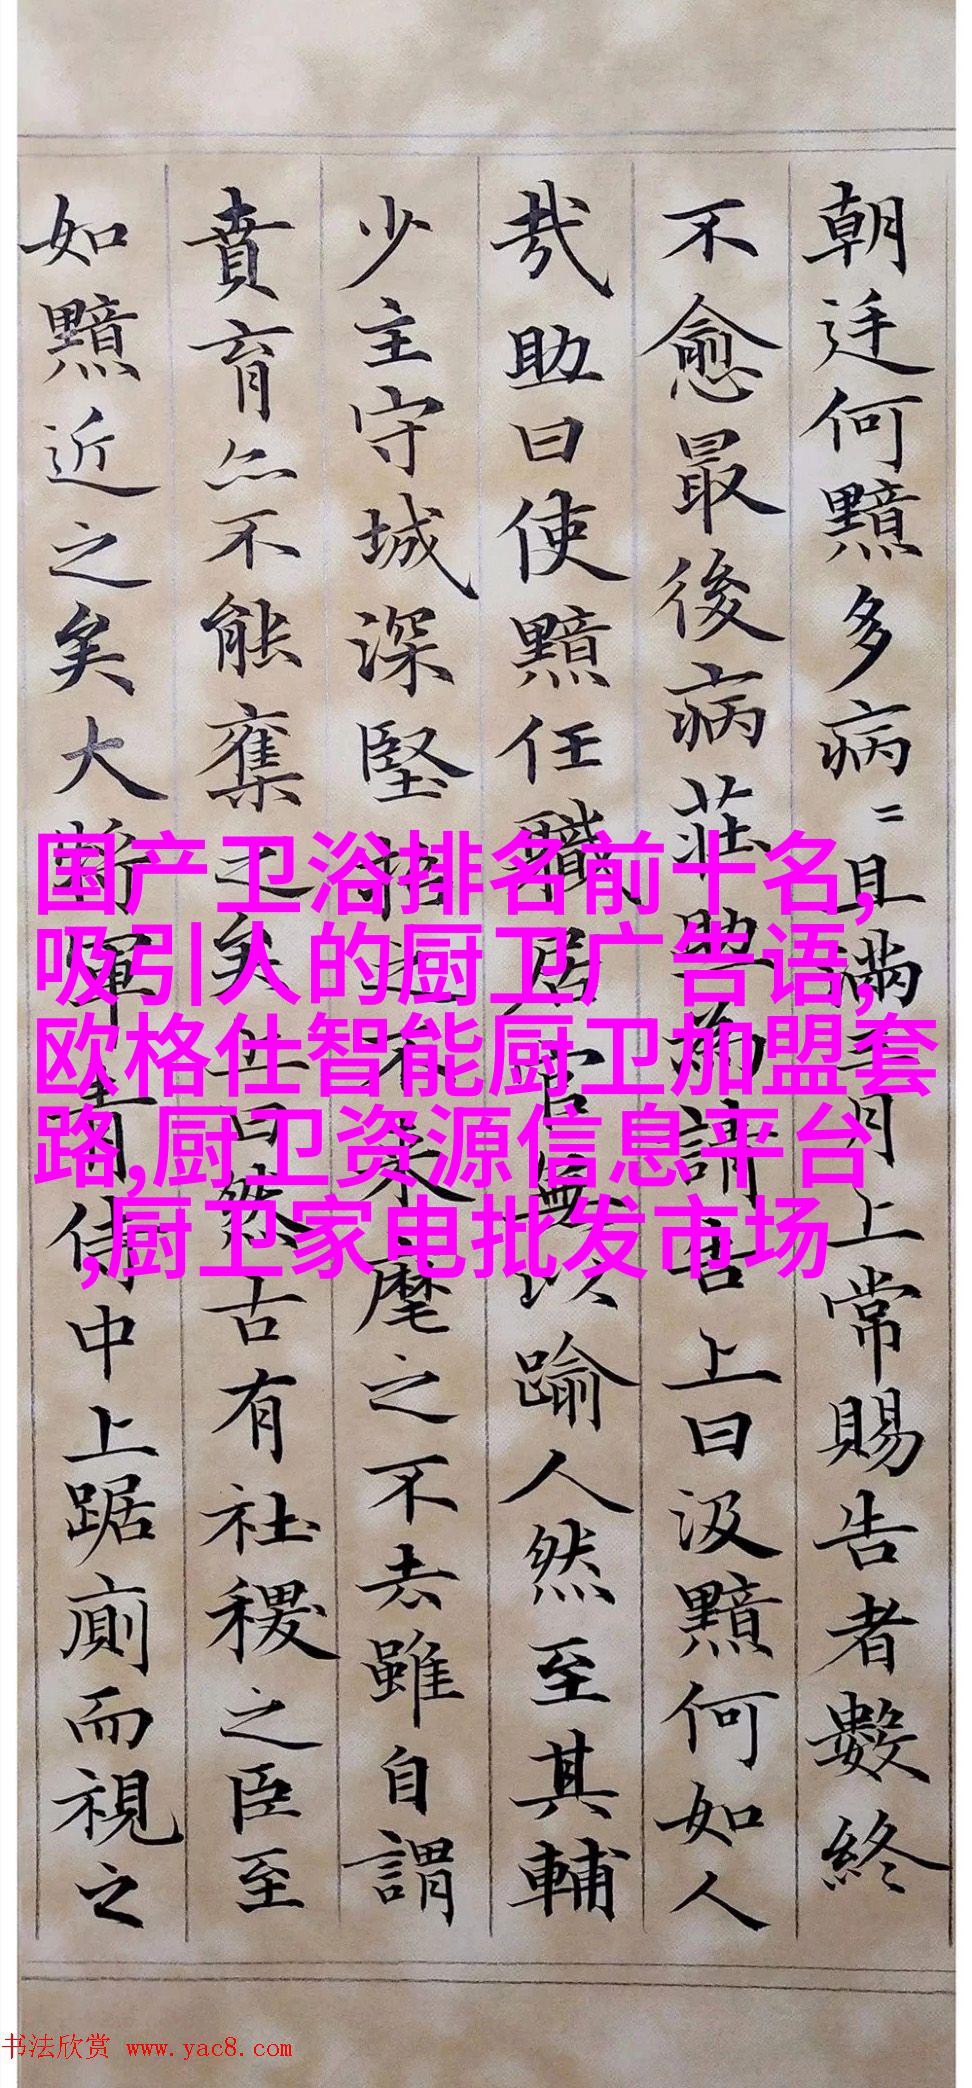 朝廷何黯多病〻且滿三月上常賜告者數終
不愈最後病莊助為請告上曰汲黯何如人
哉助曰使黯任職居官無以踰人然至其輔
少主守城深堅招之不來麾之不去雖自謂
賁育亦不能奪之矣上曰然古有社稷之臣至
如黯近之矣大將軍青侍中上踞廁而視之
国产卫浴排名前十名,
吸引人的厨卫广告语,
欧格仕智能厨卫加盟套
路,厨卫资源信息平台
,厨卫家电批发市场
书法欣赏 www.yac8.com